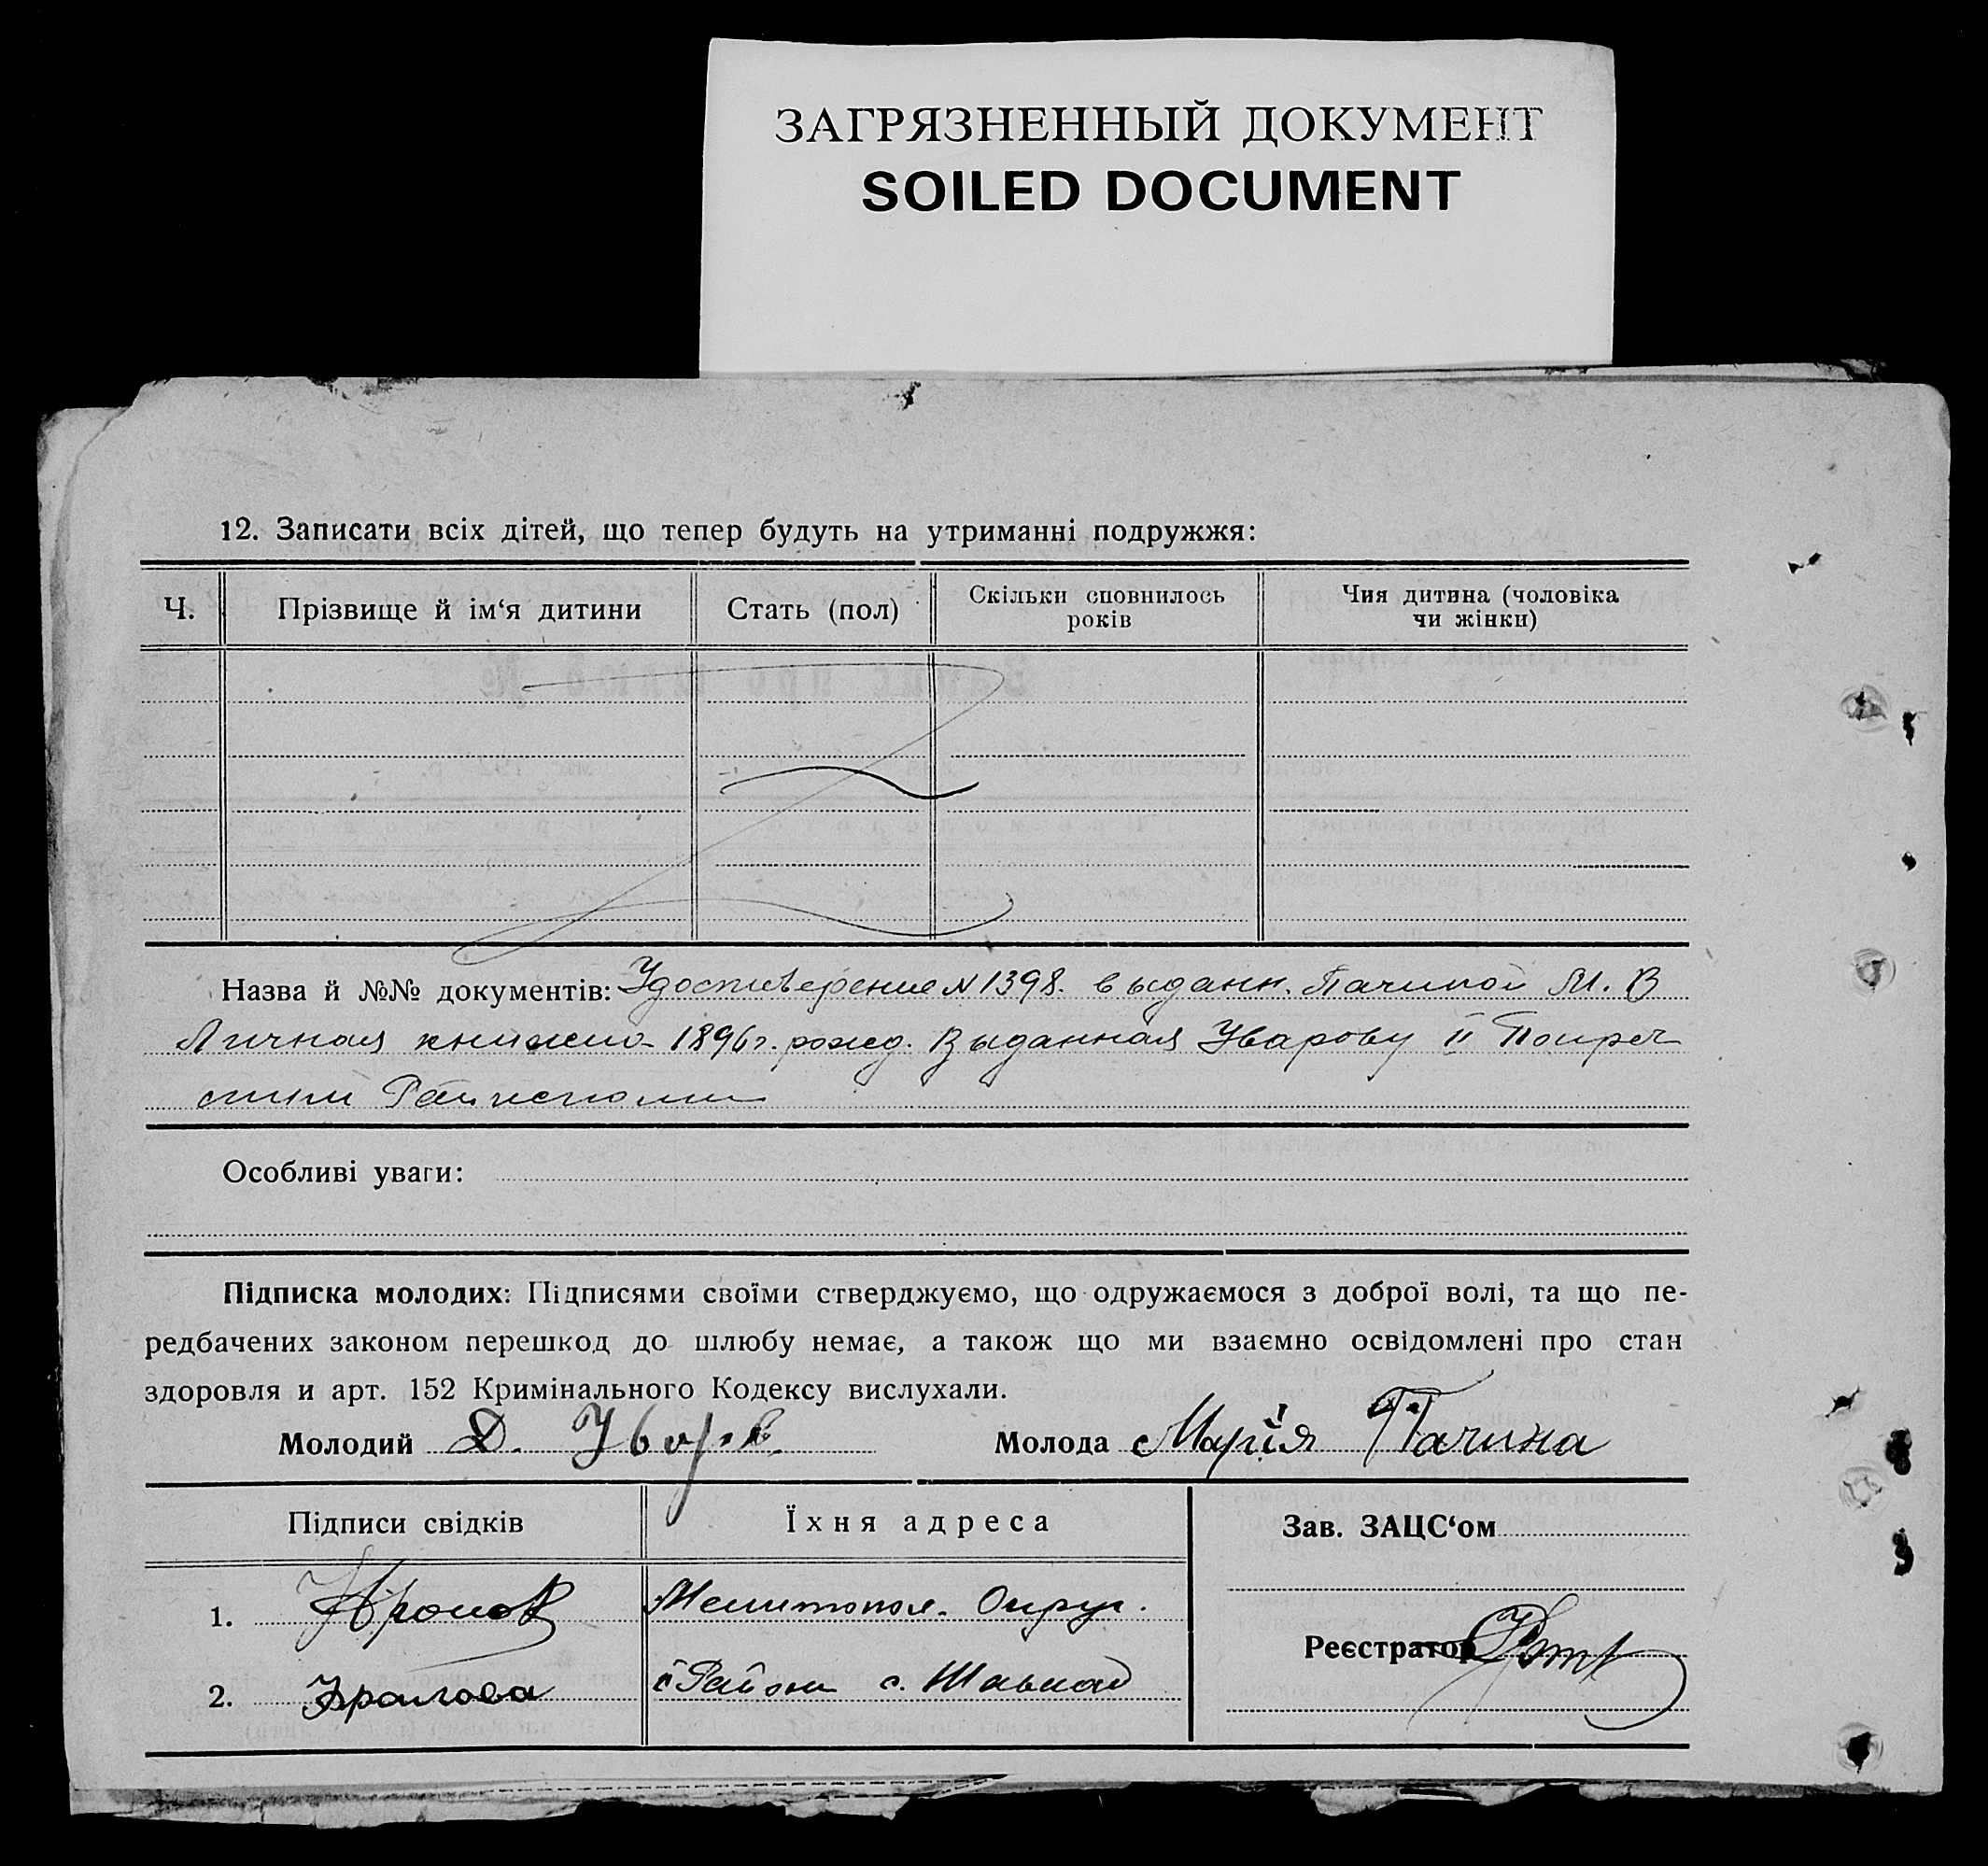 ЗАГРЯЗНЕННЫЙ ДОКУМЕНТ
SOILED DOCUMENT
12. Записати всіх дітей, що тепер будуть на утриманні подружжя:
Ч. Прізвище й ім‘я дитини Стать (пол) Скільки сповнилось років Чия дитина (чоловіка чи жінки)
Назва й №№ документів: Удостиверение N 1398. выданн. Пачиной М. В
Личная книжка 1896 г. рожд. Выданная Уварову II
Особливі уваги:
Підписка молодих: Підписями своїми стверджуємо, що одружаємося з доброї волі, та що пе-
редбачених законом перешкод до шлюбу немає, а також що ми взаємно освідомлені про стан
здоровля и арт. 152 Кримінального Кодексу вислухали.
Молодий Д. Уваров Молода Марія Пачина
Підписи свідків Їхня адреса Зав. ЗАЦС‘ом
1. Мелитопол. Округ.
Реєстратор
2. Район с.